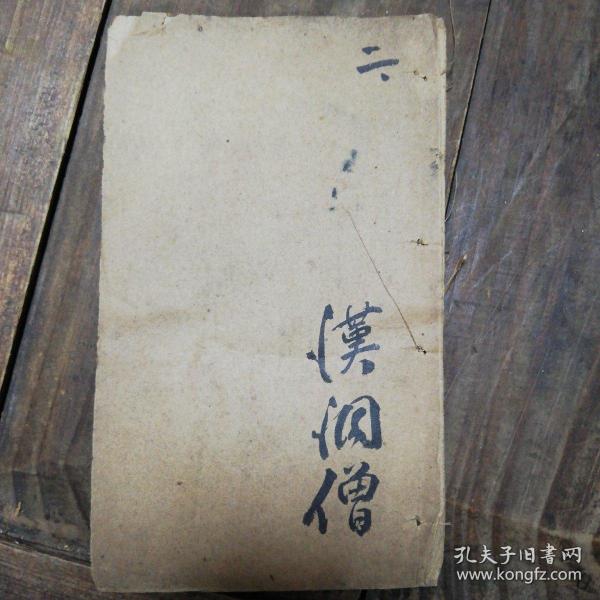 二
漢洞僧
孔夫子旧書网
www.kongfz.com